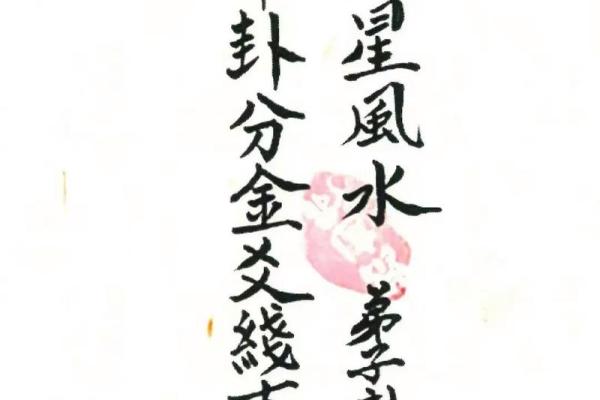 星風水 弟子
卦分金爻綫